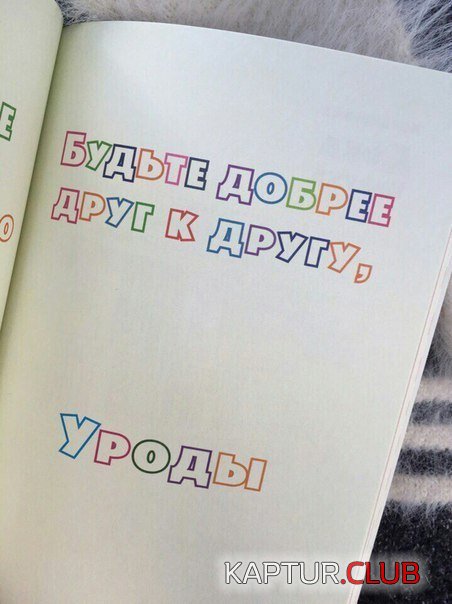 Е
О
Будьте добрее
друг к другу,
Уроды
KAPTUR.CLUB